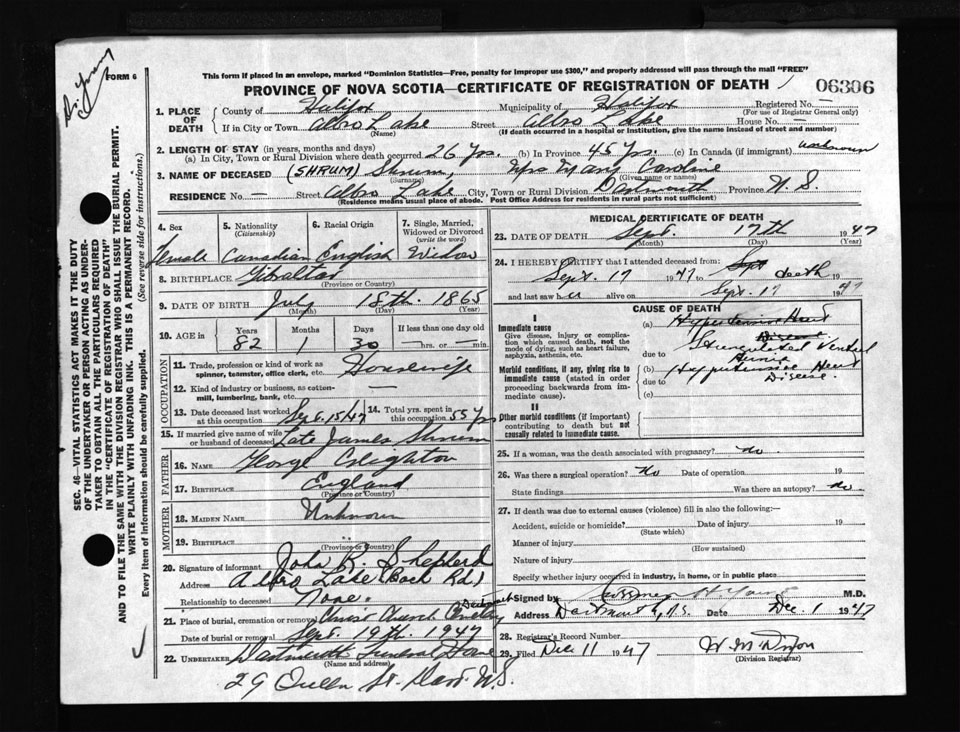 Dr. Young
FORM 6
This form if placed in an envelope, marked "Dominion Statistics—Free, penalty for improper use $300," and properly addressed will pass through the mail "FREE"
PROVINCE OF NOVA SCOTIA—CERTIFICATE OF REGISTRATION OF DEATH
06306
1. PLACE OF DEATH
County of Halifax Municipality of Halifax Registered No. —
(For use of Registrar General only)
If in City or Town Albro Lake Street Albro Lake House No. —
(Name) (If death occurred in a hospital or institution, give the name instead of street and number)
2. LENGTH OF STAY (in years, months and days)
(a) In City, Town or Rural Division where death occurred 26 Yrs. (b) In Province 45 Yrs. (c) In Canada (if immigrant) unknown
3. NAME OF DECEASED (SHRUM) Shrum, Mrs Mary Caroline
(Surname) (Given name or names)
RESIDENCE No. — Street Albro Lake City, Town or Rural Division Dartmouth Province N. S.
(Residence means usual place of abode. Post Office Address for residents in rural parts not sufficient)
4. Sex Female
5. Nationality (Citizenship) Canadian
6. Racial Origin English
7. Single, Married, Widowed or Divorced (write the word) Widow
8. BIRTHPLACE Gibraltar
(Province or Country)
9. DATE OF BIRTH July 18th. 1865
(Month) (Day) (Year)
10. AGE in Years 82 Months 1 Days 30 If less than one day old — hrs. or — min.
OCCUPATION
11. Trade, profession or kind of work as spinner, teamster, office clerk, etc. Housewife
12. Kind of industry or business, as cotton-mill, lumbering, bank, etc. —
13. Date deceased last worked at this occupation Sept. 15/47
14. Total yrs. spent in this occupation 55 Yrs
15. If married give name of wife or husband of deceased Late James Shrum
FATHER
16. NAME George Creighton
17. BIRTHPLACE England
(Province or Country)
MOTHER
18. MAIDEN NAME Unknown
19. BIRTHPLACE
(Province or Country)
20. Signature of informant John R. Shepherd
Address Albro Lake (Back Rd)
Relationship to deceased None.
21. Place of burial, cremation or removal Christ Church Cemetery Dartmouth
Date of burial or removal Sept. 19th. 1947
22. UNDERTAKER Dartmouth Funeral Home
(Name and address)
29 Queen St. Dart. N.S.
MEDICAL CERTIFICATE OF DEATH
23. DATE OF DEATH Sept. 17th 1947
(Month) (Day) (Year)
24. I HEREBY CERTIFY that I attended deceased from:
Sept. 17 1947 to Sept death 19
and last saw her alive on Sept. 17 1947
CAUSE OF DEATH
I
Immediate cause
Give disease, injury or complication which caused death, not the mode of dying, such as heart failure, asphyxia, asthenia, etc.
(a) Hypertensive Heart Disease
Strangulated Ventral Hernia
due to
Morbid conditions, if any, giving rise to immediate cause (stated in order proceeding backwards from immediate cause).
(b) Hypertensive Heart Disease
due to
(c)
II
Other morbid conditions (if important) contributing to death but not causally related to immediate cause.
25. If a woman, was the death associated with pregnancy? no.
26. Was there a surgical operation? No Date of operation 19
State findings Was there an autopsy? no.
27. If death was due to external causes (violence) fill in also the following:
Accident, suicide or homicide? Date of injury 19
(State which)
Manner of injury
(How sustained)
Nature of injury
Specify whether injury occurred in industry, in home, or in public place
Signed by H Young M.D.
Address Dartmouth, N.S. Date Dec. 1 1947
28. Registrar's Record Number
29. Filed Dec 11 1947 W M Dixon
(Division Registrar)
SEC. 46—VITAL STATISTICS ACT MAKES IT THE DUTY OF THE UNDERTAKER OR PERSON ACTING AS UNDERTAKER TO OBTAIN ALL THE PARTICULARS REQUIRED IN THE "CERTIFICATE OF REGISTRATION OF DEATH" AND TO FILE THE SAME WITH THE DIVISION REGISTRAR WHO SHALL ISSUE THE BURIAL PERMIT.
WRITE PLAINLY WITH UNFADING INK. THIS IS A PERMANENT RECORD.
Every item of information should be carefully supplied. (See reverse side for instructions.)